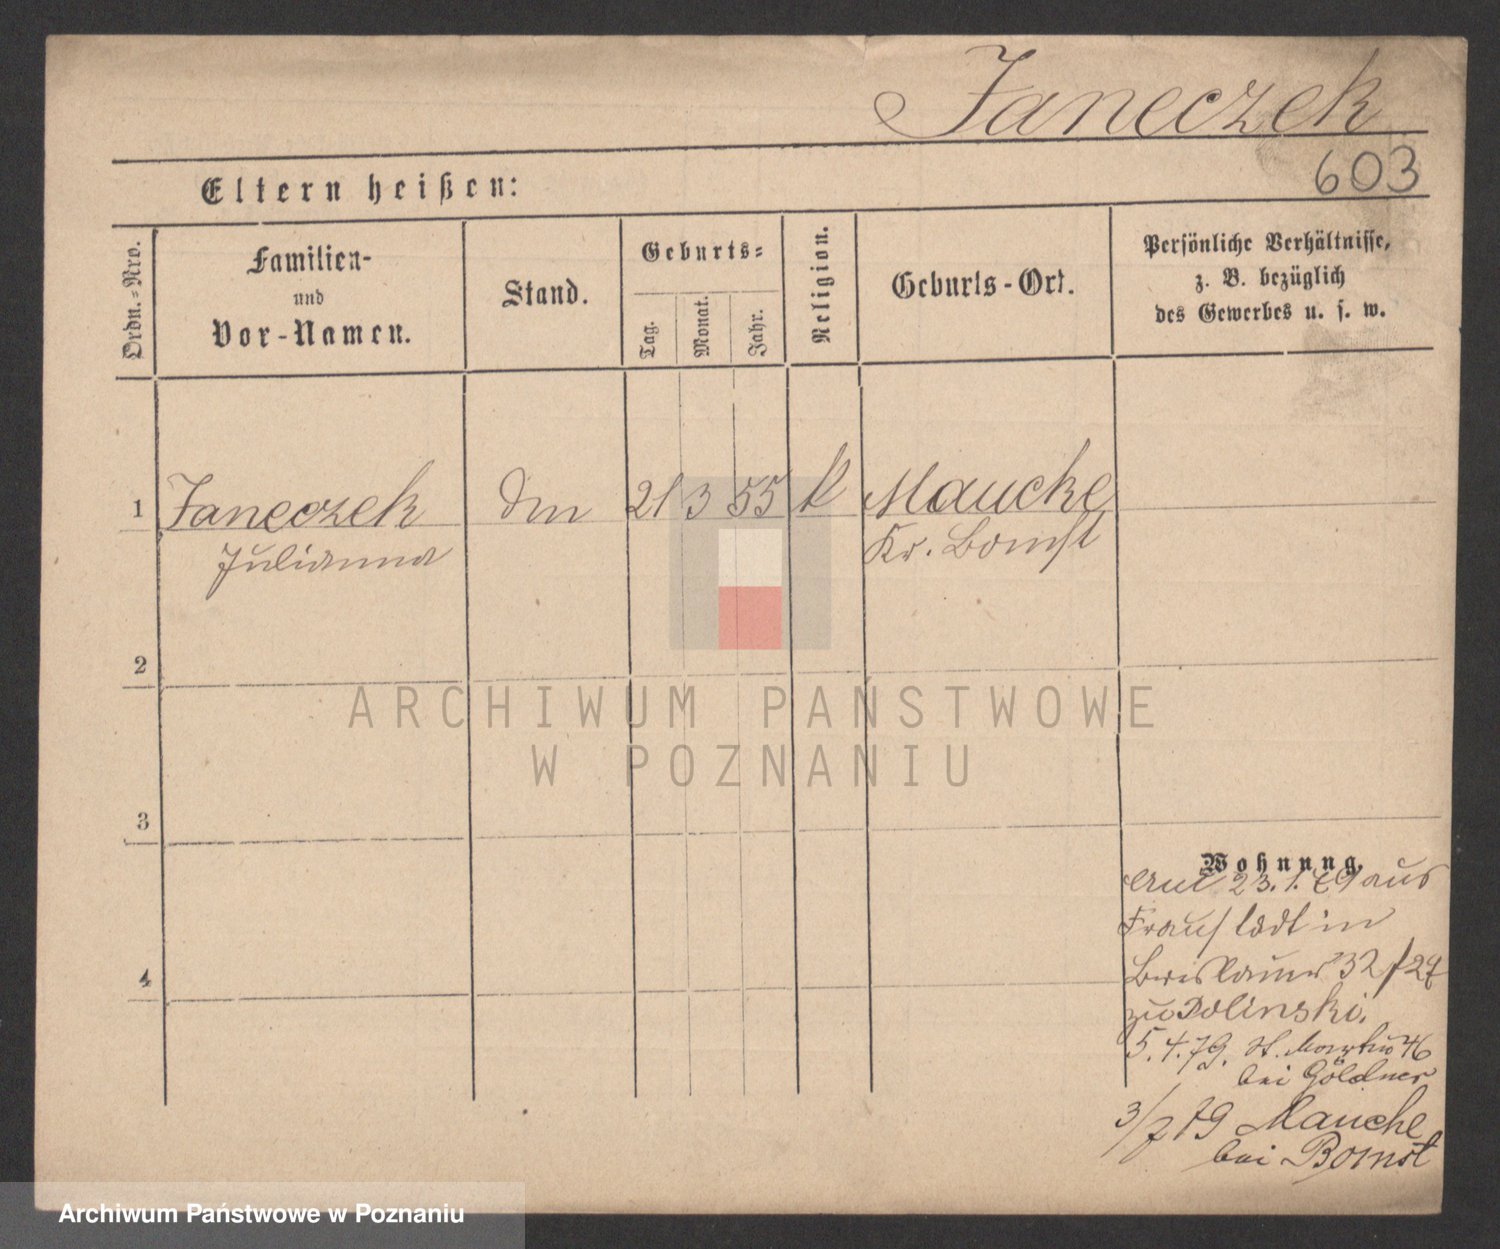 Janeczek
603
Eltern heißen:
Ordn.-Nro.
Familien-
und
Vor-Namen.
Stand.
Geburts-
Tag.
Monat.
Jahr.
Religion.
Geburts-Ort.
Persönliche Verhältnisse,
z. B. bezüglich
des Gewerbes u. s. w.
1 Janeczek 21 3 55 k Mauche
Julianna Kr. Bomst
2
3
4
Wohnung.
23. 1. 79 aus
Fraustadt in
Breslauer 32 / 27
zu Dolinski.
5. 4. 79. St. Martin 46
bei Göldner
3/7 79 Mauche
bei Bomst
ARCHIWUM PAŃSTWOWE
W POZNANIU
Archiwum Państwowe w Poznaniu